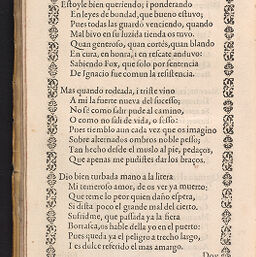 Estoyle bien queriendo; i ponderando
En leyes de bondad, que bueno estuvo;
Pues todas las guardó venciendo, quando
Mal bivo en su luzida tienda os tuvo.
Quan generoso, quan cortés, quan blando
En cura, en honra, i en rescate anduvo:
Sabiendo Fox, que solo por sentencia
De Ignacio fue comun la resistencia.
Mas quando rodeada, i triste vino
A mi la fuerte nueva del sucesso;
No sè como salir pude al camino,
O como no salì de vida, o sesso:
Pues tiemblo aun cada vez que os imagino
Sobre alternados ombros noble peso;
Tan hecho desde el muslo al pie, pedaços,
Que apenas me pudistes dar los braços.
Dio bien turbada mano a la litera
Mi temeroso amor, de os ver ya muerto:
Que teme lo peor quien daño espera,
Si dista poco el grande mal del cierto.
Sufridme, que passada ya la fiera
Borrasca, os hable della yo en el puerto:
Pues queda ya el peligro a trecho largo,
I es dulce referido el mas amargo.